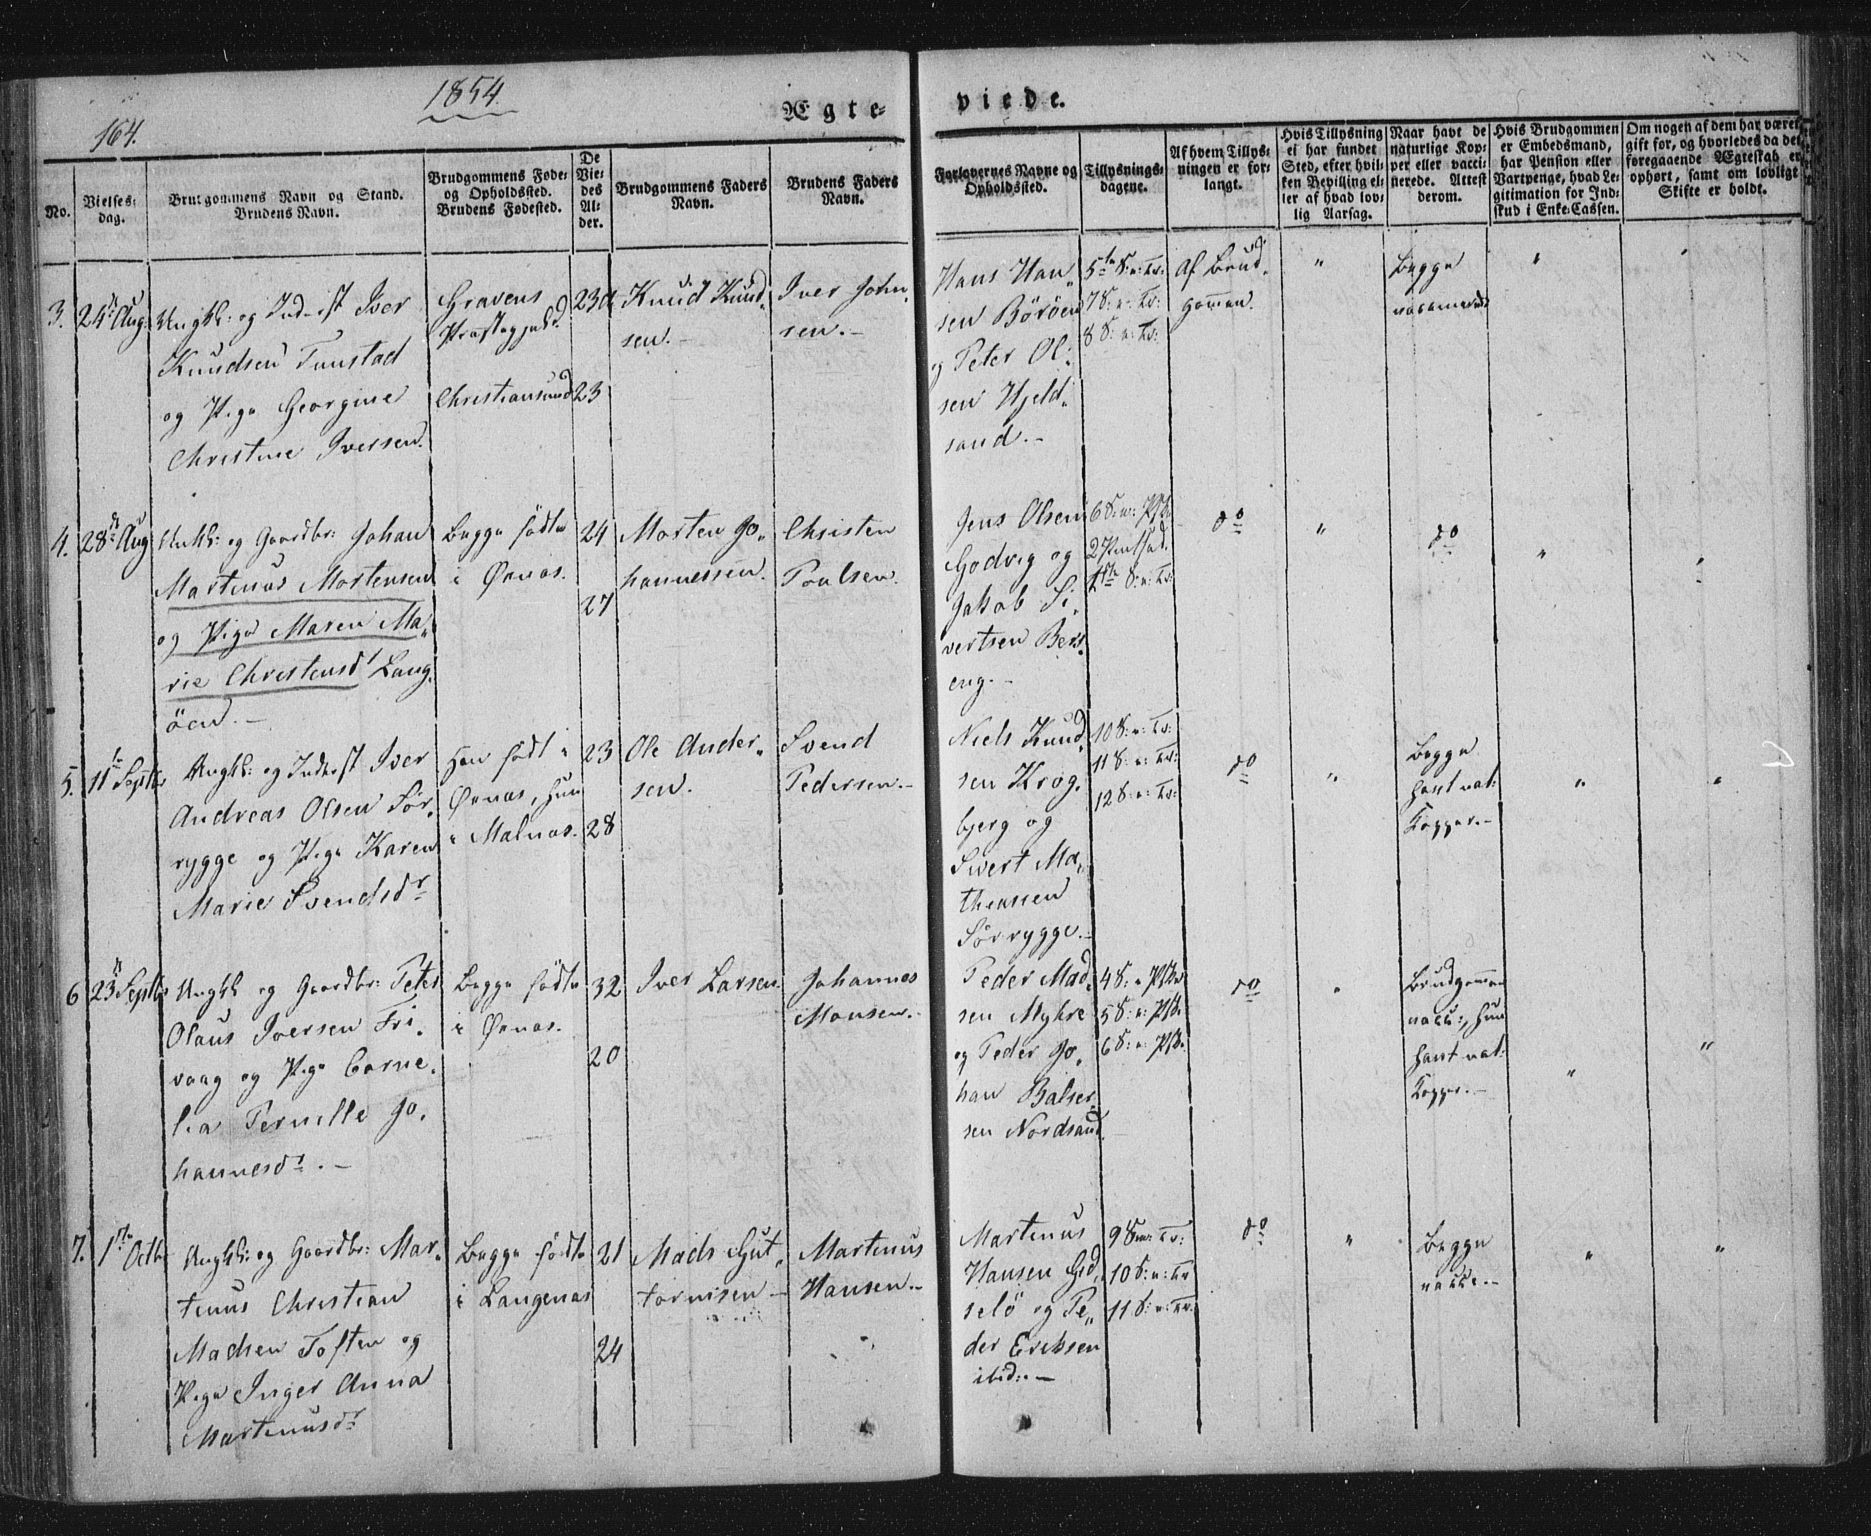 164.
1854.
Ægte-
viede.
No.
Vielses-
dag.
Brudgommens Navn og Stand.
Brudens Navn.
Brudgommens Føde-
og Opholdssted.
Brudens Fødested.
De
Vie-
des
Al-
der.
Brudgommens Faders
Navn.
Brudens Faders
Navn.
Forlovernes Navne og
Opholdssted.
Tillysnings-
dagene.
Af hvem Tillys-
ningen er for-
langt.
Hvis Tillysning
ei har fundet
Sted, efter hvil-
ken Bevilling el-
ler af hvad lov-
lig Aarsag.
Naar havt de
naturlige Kop-
per eller vacci-
nerede. Attest
derom.
Hvis Brudgommen
er Embedsmand,
har Pension eller
Vartpenge, hvad Le-
gitimation for Ind-
skud i Enke-Cassen.
Om nogen af dem har været
gift før, og hvorledes da det
foregaaende Ægteskab er
ophørt, samt om lovligt
Skifte er holdt.
3.
24de Aug:
Ungk: og Inderst Iver
Knudsen Tunstad
og Pige Georgine
Christine Iversen.
Gravens
Præstegjeld.
Christiansund
23
23
Knud Knud-
sen.
Iver John-
sen.-
Hans Han-
sen Böröen
og Peter Ol-
sen Hjeld-
sand.-
5te S: e: Tr:
7 S: e: Tr:
8 S: e: Tr:
Af Brud-
gommen.
"
Begge
vaccinerede
"
"
4.
28de Aug
Ungk: og Gaardbr: Johan
Martinus Mortensen
og Pige Maren Ma-
rie Christensdr Lang-
öen.-
Begge födte
i Öxnæs.
24
27
Morten Jo-
hannessen.
Christen
Poulsen.
Jens Olsen
Godvig og
Jakob Si-
vertsen Bers-
eng.-
6 S: e: Psk:
1ste S: e: Tr:
do
"
do
"
"
5.
11te Septbr
Ungk: og Inderst Iver
Andreas Olsen Sör-
rygge og Pige Karen
Marie Svendsdr
Han födt i
Öxnæs, hun
i Malnæs.
23
28
Ole Ander-
sen.
Svend
Pedersen.-
Niels Knud-
sen Krog-
bjerg og
Sivert Ma-
theussen
Sörrygge.-
10 S: e: Tr:
11 S: e: Tr:
12 S: e: Tr:
do
"
Begge
havt nat:
Kopper.-
"
"
6
23de Septbr
Ungk og Gaardbr: Peter
Olaus Iversen Fri-
vaag og Pige Corne-
lia Pernille Jo-
hannesdr.-
Begge födte
i Öxnæs.
32
20
Iver Larsen
Johannes
Monsen.-
Peder Mad-
sen Myhre
og Peder Jo-
han Balser-
sen Nordsand.
4 S: e Psk:
5 S: e: Psk.
6 S: e: Psk.
do
"
Brudgommen
vacc:, hun
havt nat:
Kopper.-
"
"
7.
1ste Octbr
Ungk: og Gaardbr: Mar-
tinus Christian
Madsen Toften og
Pige Inger Anna
Martinusdr
Begge födte
i Langenæs
21
24
Mads Gut-
tormsen-
Martinus
Hansen.-
Martinus
Hansen Gid-
selö og Pe-
der Eriksen
ibid:.-
9 S: e: Tr:
10 S: e: Tr
11 S: e: Tr:
do
"
Begge
vacc.-
"
"